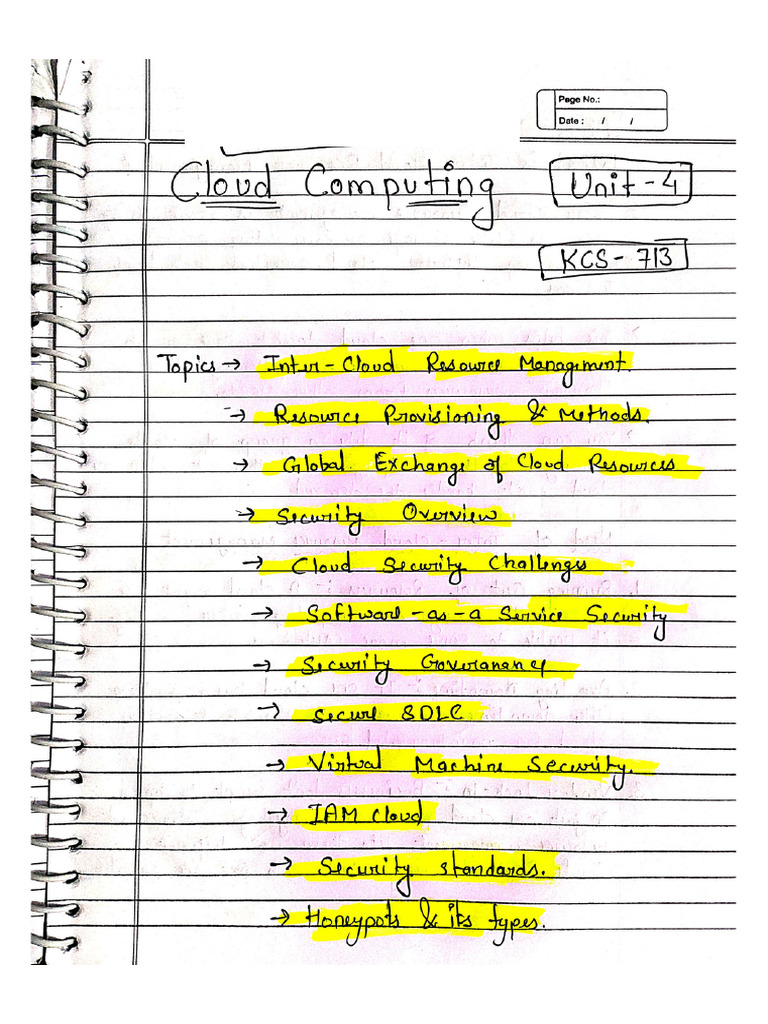 Page No.:
Date : / /
Cloud Computing Unit-4
KCS-713
Topics → Inter-Cloud Resource Management.
→ Resource Provisioning & Methods.
→ Global Exchange of Cloud Resources
→ Security Overview
→ Cloud Security Challenges
→ Software-as-a Service Security
→ Security Goveranancy
→ Secure SDLC
→ Virtual Machine Security.
→ IAM Cloud
→ Security standards.
→ Honeypots & its types.